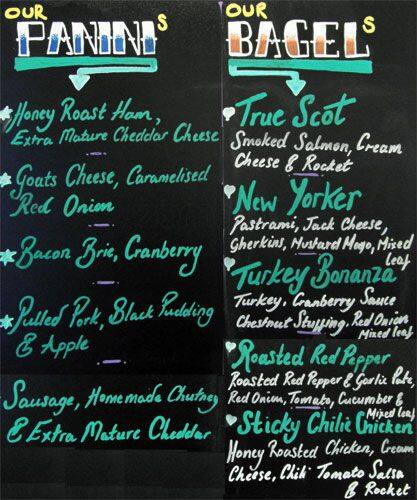 OUR
PANINIs
Honey Roast Ham,
Extra Mature Cheddar Cheese
Goats Cheese, Caramelised
Red Onion
Bacon Brie, Cranberry
Pulled Pork, Black Pudding
& Apple
Sausage, Homemade Chutney
& Extra Mature Cheddar
OUR
BAGELs
True Scot
Smoked Salmon, Cream
Cheese & Rocket
New Yorker
Pastrami, Jack Cheese,
Gherkins, Mustard Mayo, Mixed
leaf
Turkey Bonanza
Turkey, Cranberry Sauce
Chestnut Stuffing, Red Onion
Mixed leaf
Roasted Red Pepper
Roasted Red Pepper & Garlic Pate
Red Onion, Tomato, Cucumber &
Mixed leaf
Sticky Chilli Chicken
Honey Roasted Chicken, Cream
Cheese, Chili Tomato Salsa
& Rocket